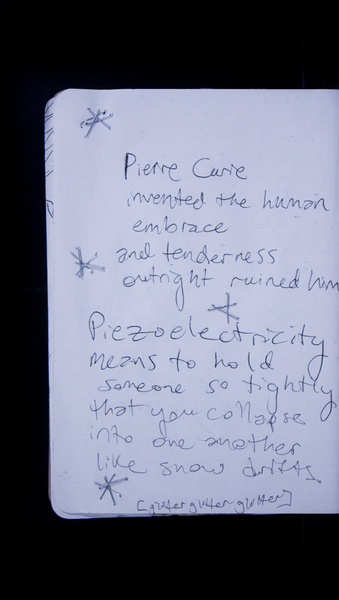 Pierre Curie
invented the human
embrace
and tenderness
outright ruined him
Piezoelectricity
means to hold
someone so tightly
that you collapse
into one another
like snow drifts
[glitter glitter glitter]